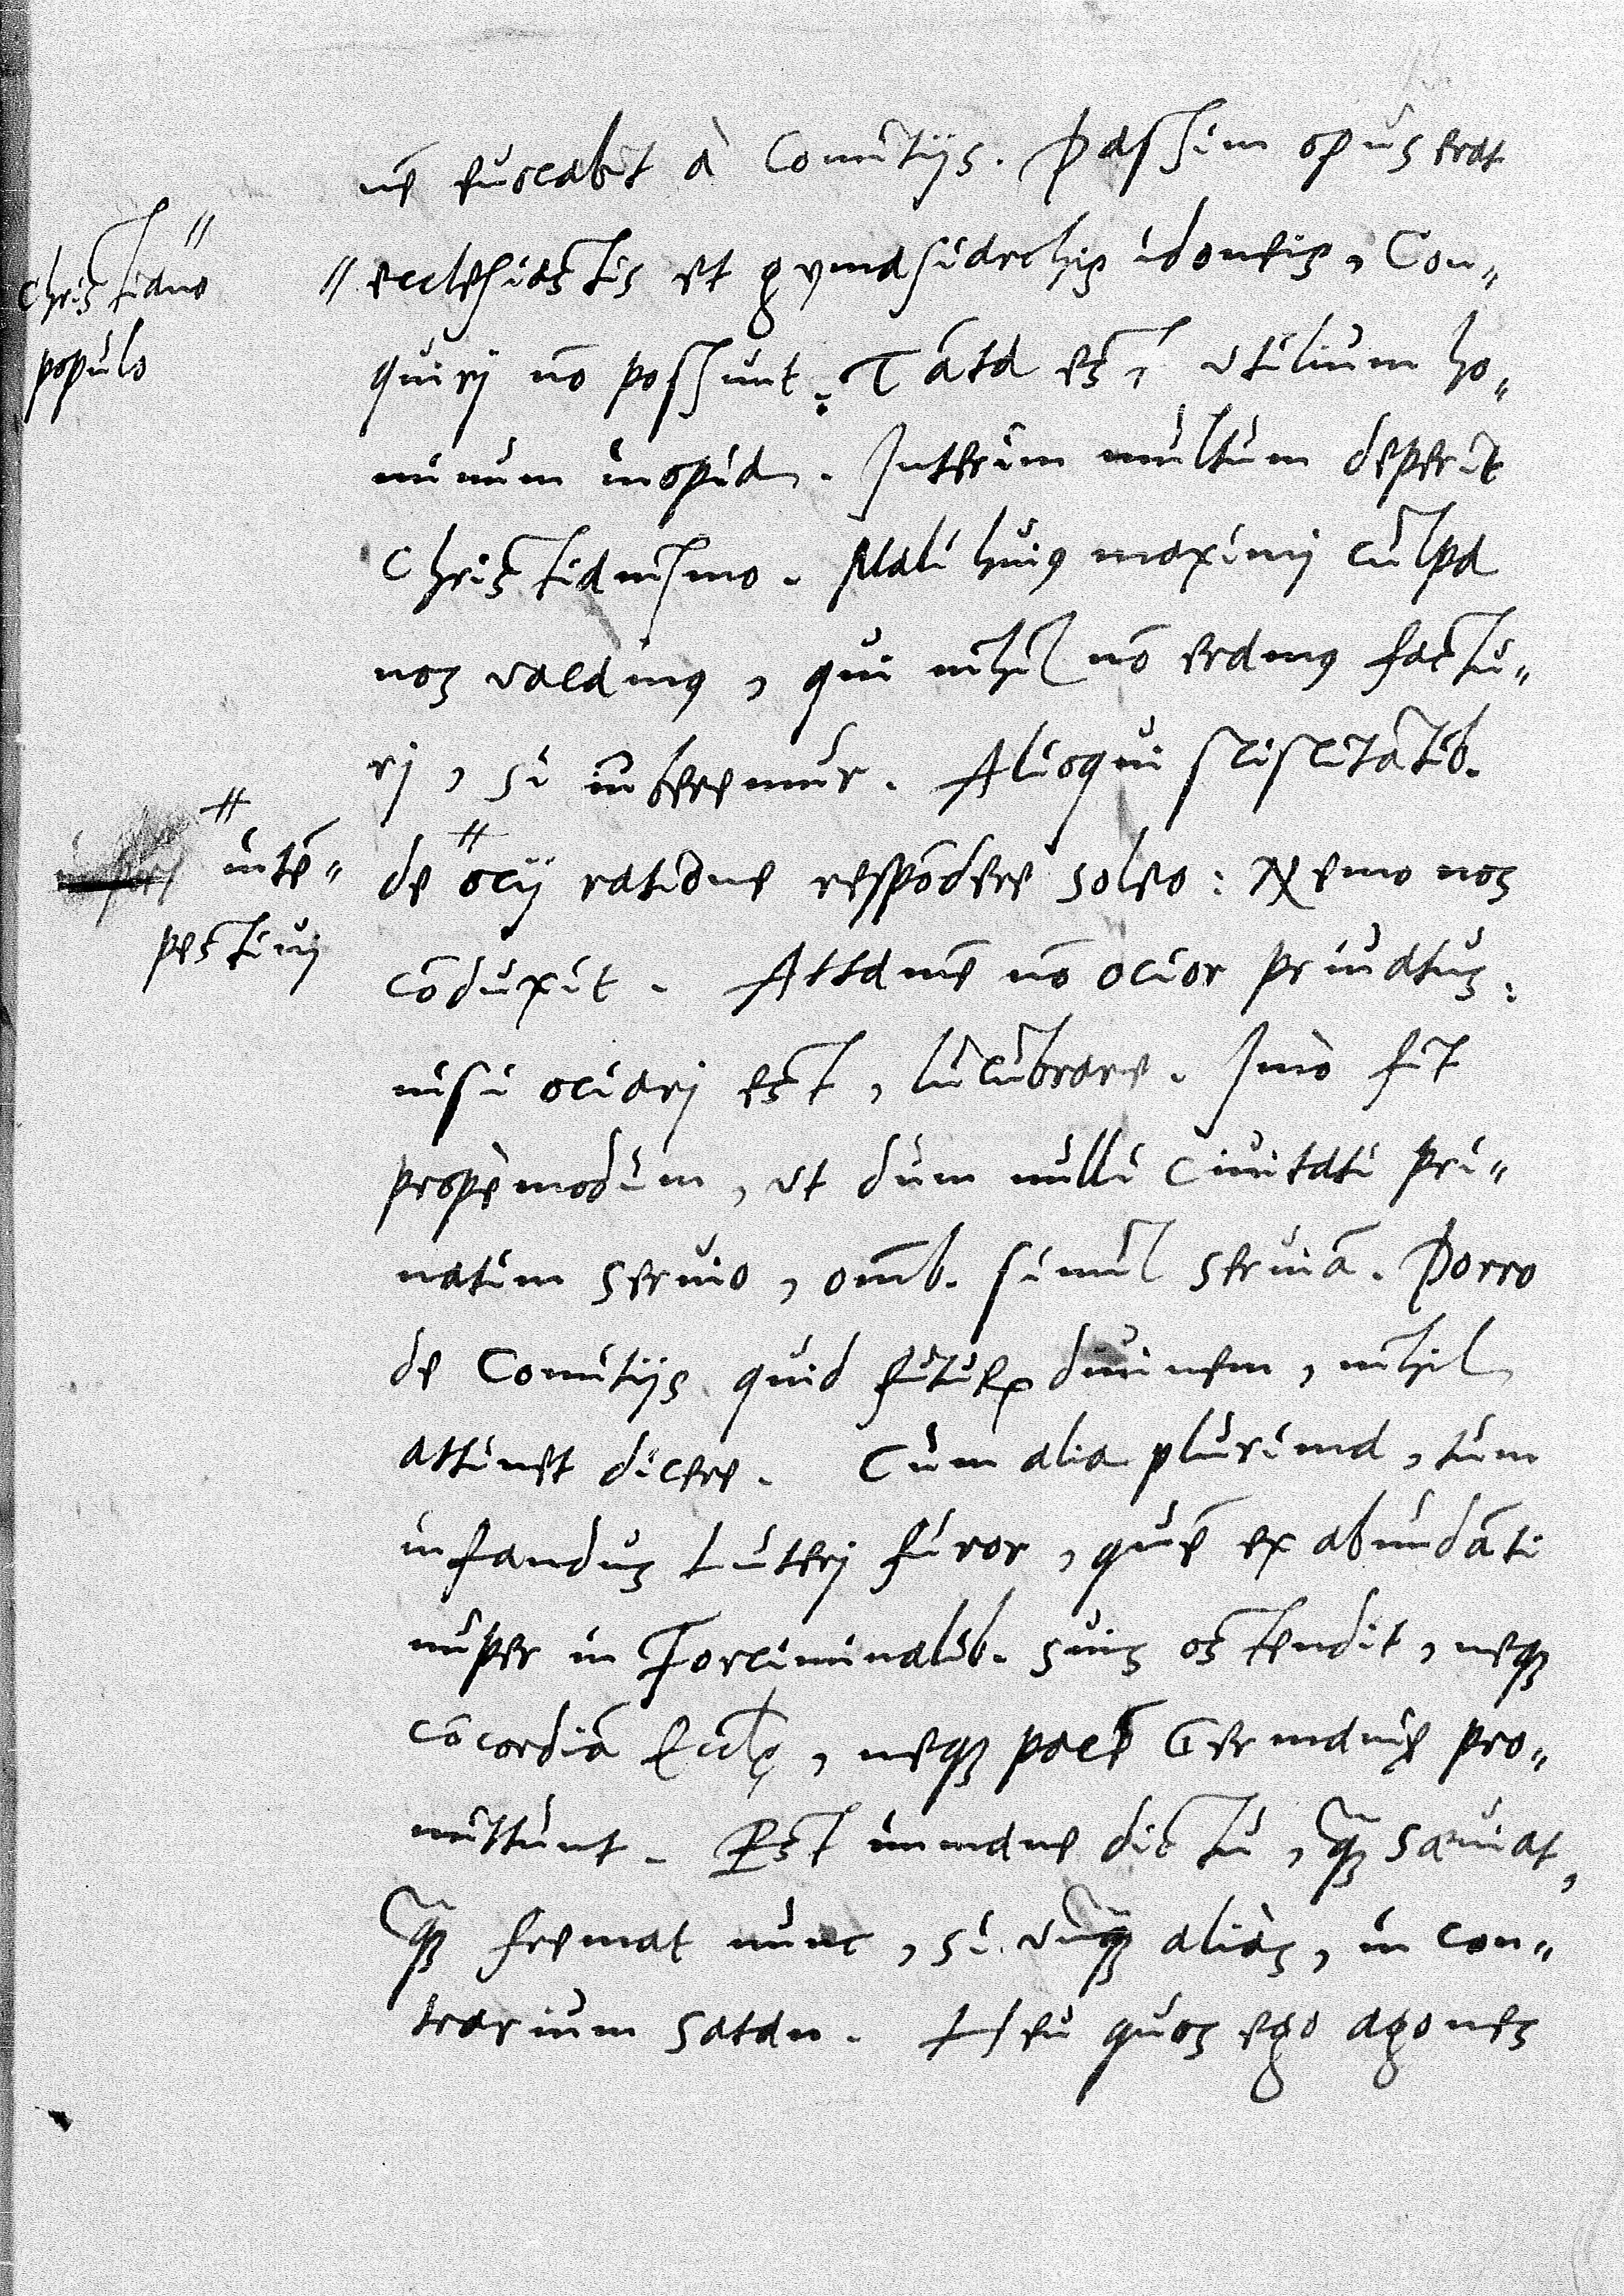 nē euocabit à Comitijs. Passim opus erat
Christiano
populo
ecclesiastis et gymnasiarchis idoneis, Con„
quirj nō possunt. Tāta est vtilium ho„
minum inopia. Interim multum deperit
Christianismo. Mali huius maximj culpa
nos vacamus, qui nihil nō eramus factu„
rj, si iuberemur. Alioqui sciscitātib.
intē„
pestiuj
de ocij ratione respōdere soleo: Nemo nos
cōduxit. Attamē nō ocior priuatus:
nisi ociarj est, lucubrare. Imò fit
propèmodum, vt dum nulli Ciuitati pri„
uatim seruio, omīb. simul seruiā. Porro
de Comitijs quid futurū diuinem, nihil
attinet dicere. Cum alia plurima, tum
infandus Luterj furor, quē ex abundāti
nuper in Forciminalib. suis ostendit, neque
cōcordiā Ecclę, neque pacē Germanię pro„
mittunt. Est immane dictu, quā sæuiat,
quā fremat nunc, si vnquā aliàs, in con„
trarium satan. Heu quos ego agones